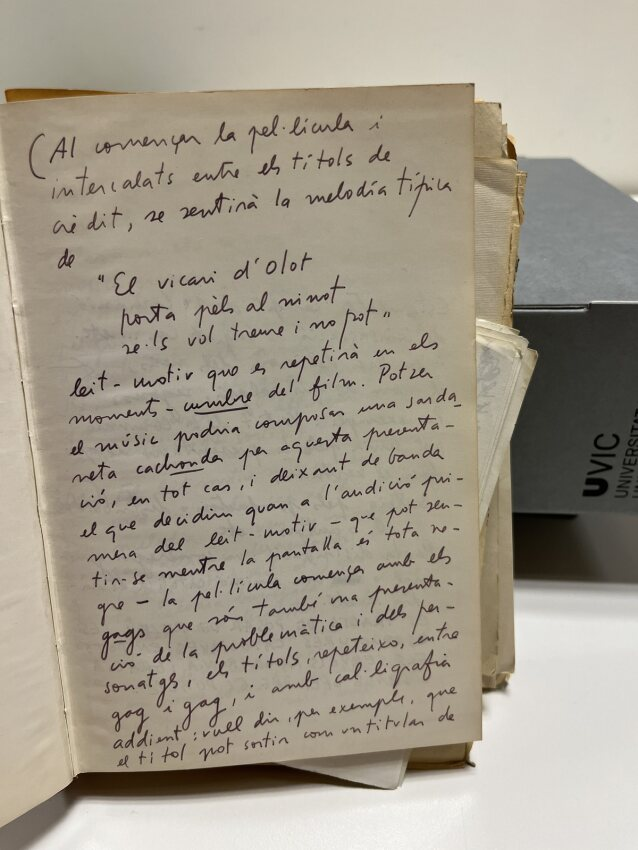 (Al començar la pel·lícula i
intercalats entre els títols de
crèdit, se sentirà la melodía típica
de
"El vicari d'Olot
porta pèls al ninot
se·ls vol treure i no pot"
leit-motiv que es repetirà en els
moments-cumbre del film. Potser
el músic podria composar una sarda-
neta cachonda per aquesta presenta-
ció, en tot cas, i deixant de banda
el que decidim quan a l'audició pri-
mera del leit-motiv - que pot sen-
tir-se mentre la pantalla és tota ne-
gre - la pel·lícula començar amb els
gags que són també una presenta-
ció de la problemàtica i dels per-
sonatges, els títols, repeteixo, entre
gag i gag, i amb cal·ligrafia
addient: vull dir, per exemple, que
el títol pot sortir com un titular de
UVIC